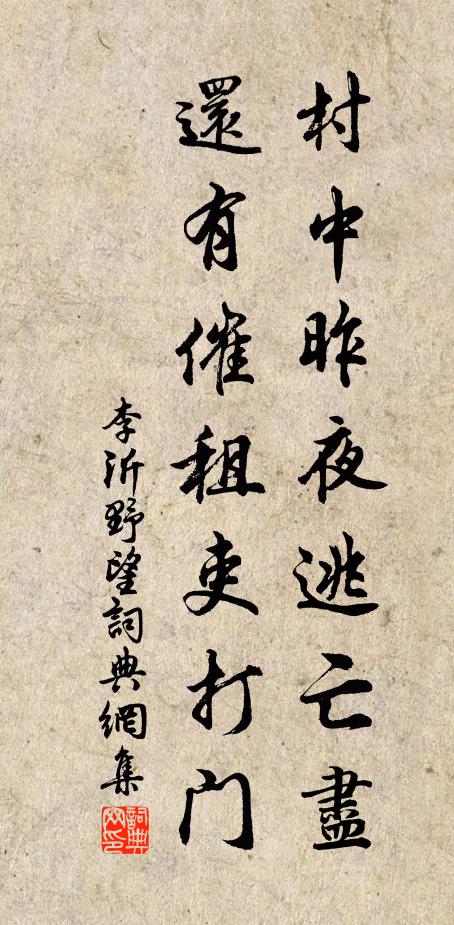 村中昨夜逃亡盡
還有催租吏打門
李沂野望詞典網集
詞典网印